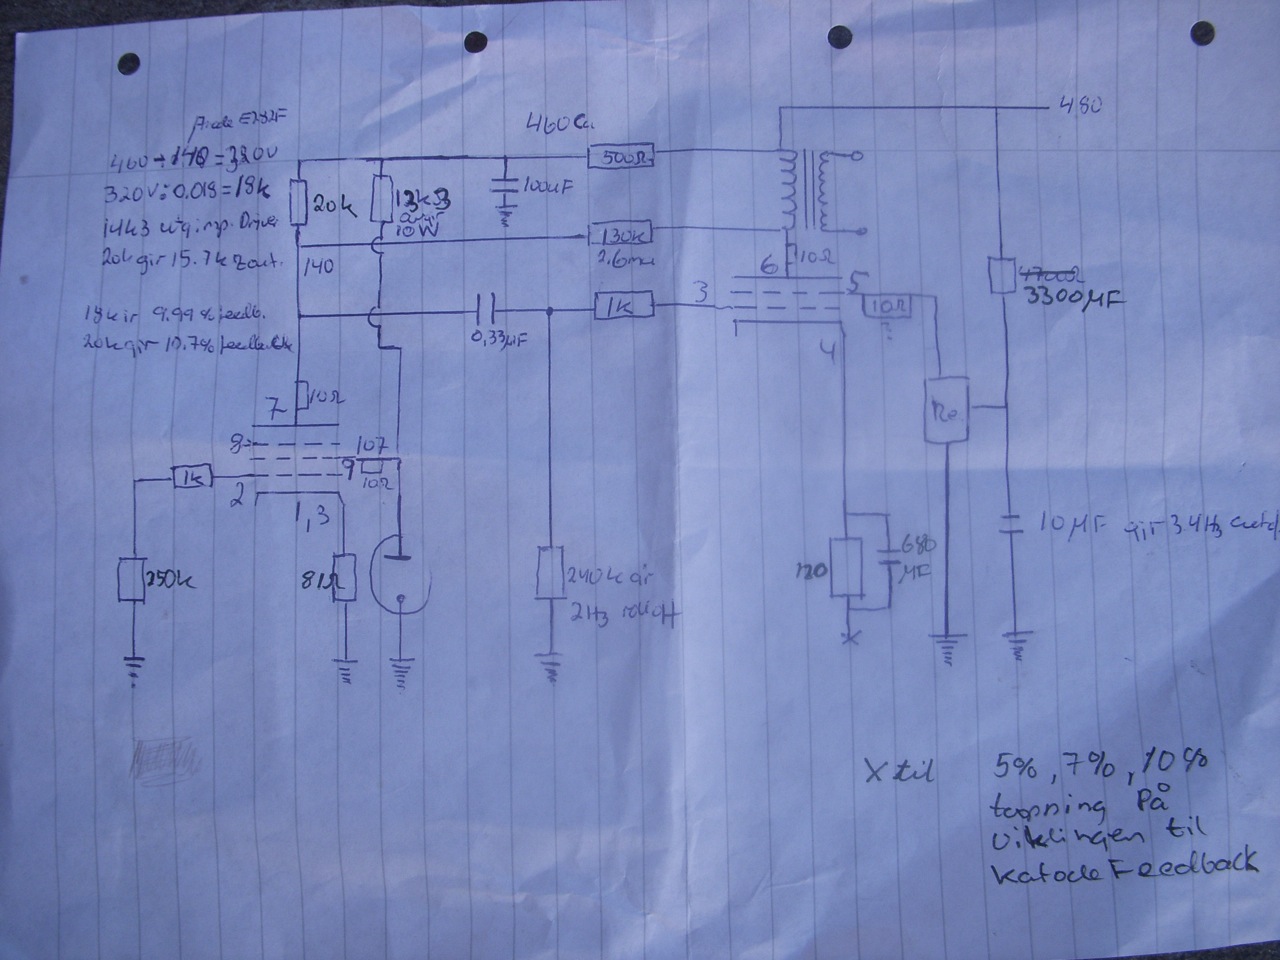 Anode E282F
460 - 140 = 320V
320V : 0.018 = 18k
14k3 utg.imp. Driver
20k gir 15.7k zout.
18k ir 9.99% feedb.
20k gir 10.7% feedback
460 Ca.
480
500Ω
20k
12k3
10W
100µF
130k
2.6ma
140
10Ω
6
5
3
1k
10Ω
?
1
4
0,33µF
4700Ω
3300µF
7
10Ω
8
107
9
10Ω
1k
2
1,3
Re
250k
81Ω
240k gir
2Hz rolloff
120
680
µF
10µF gir 3.4Hz
X
X til
5%, 7%, 10%
tapning På
viklingen til
Katode Feedback